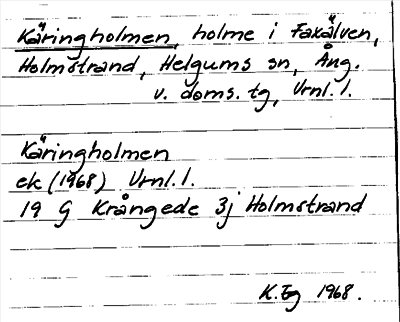 Käringholmen, holme i Faxälven,
Holmstrand, Helgums sn, Ång.
v. doms. tg, Vrnl. 1.
Käringholmen
ek (1968) Vrnl. 1.
19 G Krångede 3j Holmstrand
K. Eg 1968.